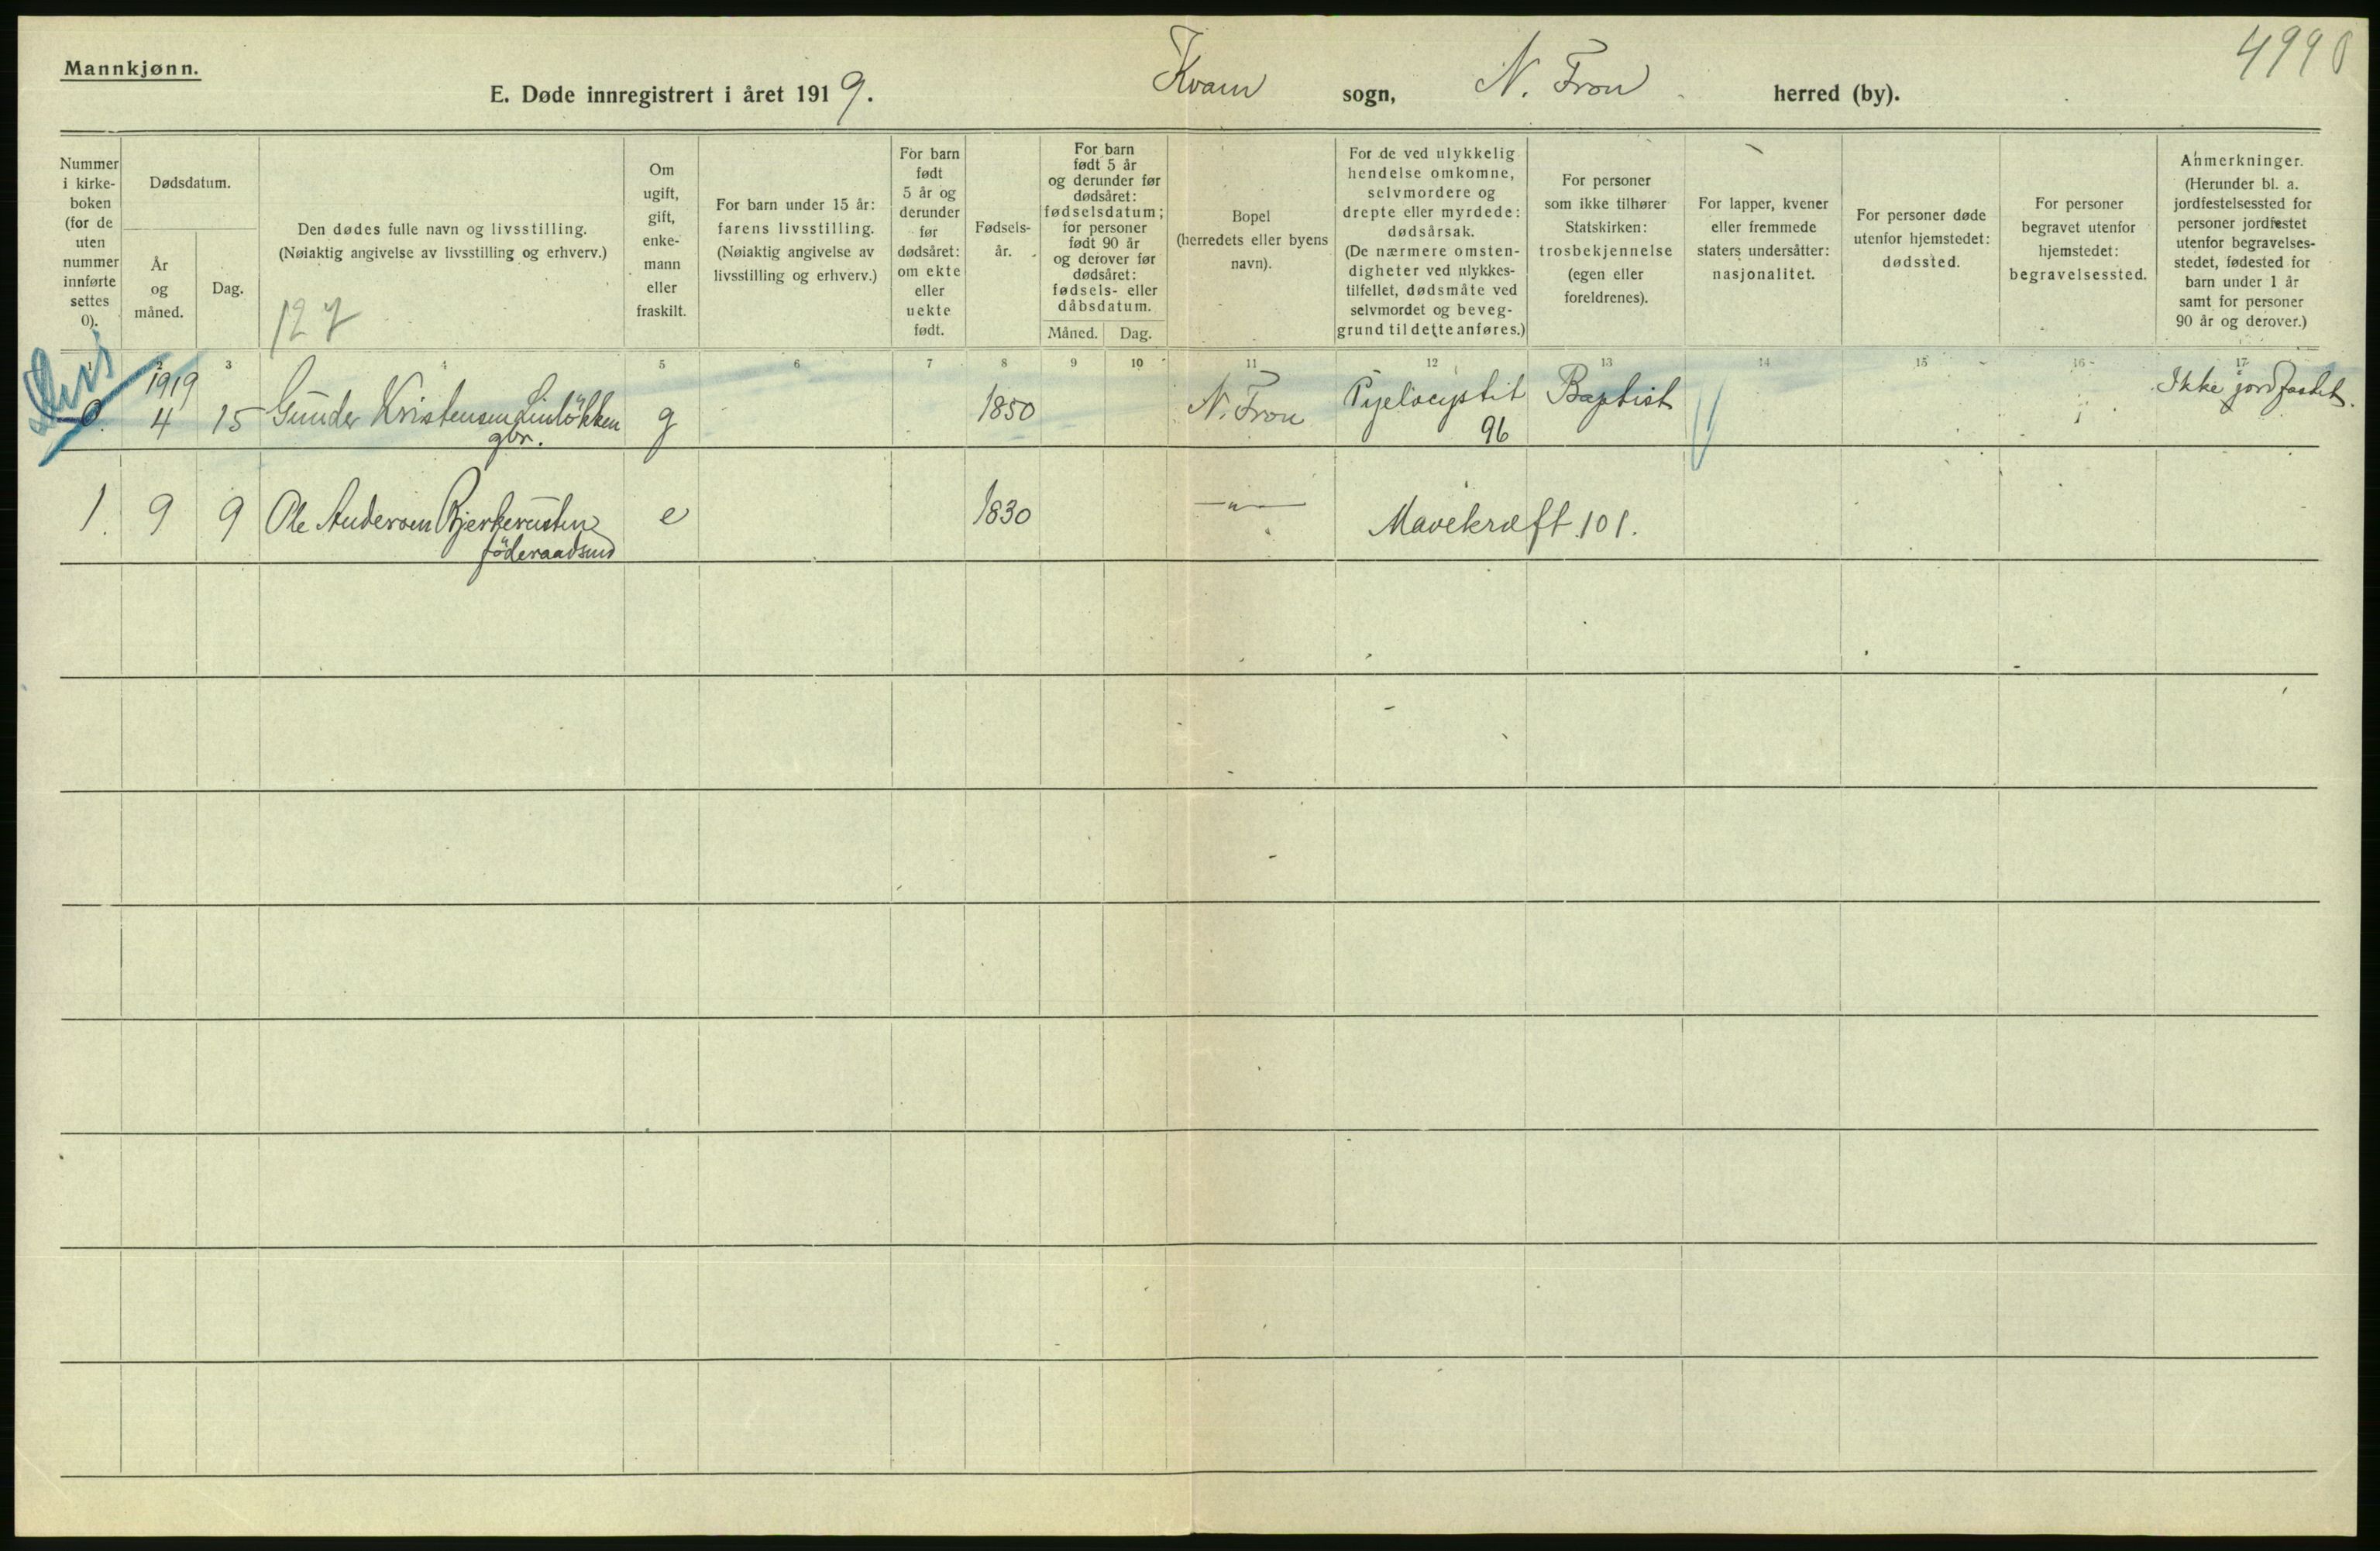 Mannkjønn.
4990
E. Døde innregistrert i året 1919. Kvam sogn, N. Fron herred (by).
Nummer i kirke- boken (for de uten nummer innførte settes 0).
Dødsdatum.
År og måned.
Dag.
Den dødes fulle navn og livsstilling.
(Nøiaktig angivelse av livsstilling og erhverv.)
127
Om ugift, gift, enke- mann eller fraskilt.
For barn under 15 år: farens livsstilling.
(Nøiaktig angivelse av livsstilling og erhverv.)
For barn født 5 år og derunder før dødsåret: om ekte eller uekte født.
Fødsels- år.
For barn født 5 år og derunder før dødsåret: fødselsdatum; for personer født 90 år og derover før dødsåret: fødsels- eller dåbsdatum.
Måned. Dag.
Bopel (herredets eller byens navn).
For de ved ulykkelig hendelse omkomne, selvmordere og drepte eller myrdede: dødsårsak.
(De nærmere omsten- digheter ved ulykkes- tilfellet, dødsmåte ved selvmordet og beveg- grund til dette anføres.)
For personer som ikke tilhører Statskirken: trosbekjennelse (egen eller foreldrenes).
For lapper, kvener eller fremmede staters undersåtter: nasjonalitet.
For personer døde utenfor hjemstedet: dødssted.
For personer begravet utenfor hjemstedet: begravelsessted.
Anmerkninger.
(Herunder bl. a. jordfestelsessted for personer jordfestet utenfor begravelses- stedet, fødested for barn under 1 år samt for personer 90 år og derover.)
1 2 3 4 5 6 7 8 9 10 11 12 13 14 15 16 17
1919
0. 4 15 Gunder Kristensen Linløkken g 1850 N. Fron Pyelocystit Baptist Ikke jordfastet.
gbr. 96
1. 9 9 Ole Andersen Bjerkerusten e 1830 —"— Mavekræft 101.
föderaadsmd